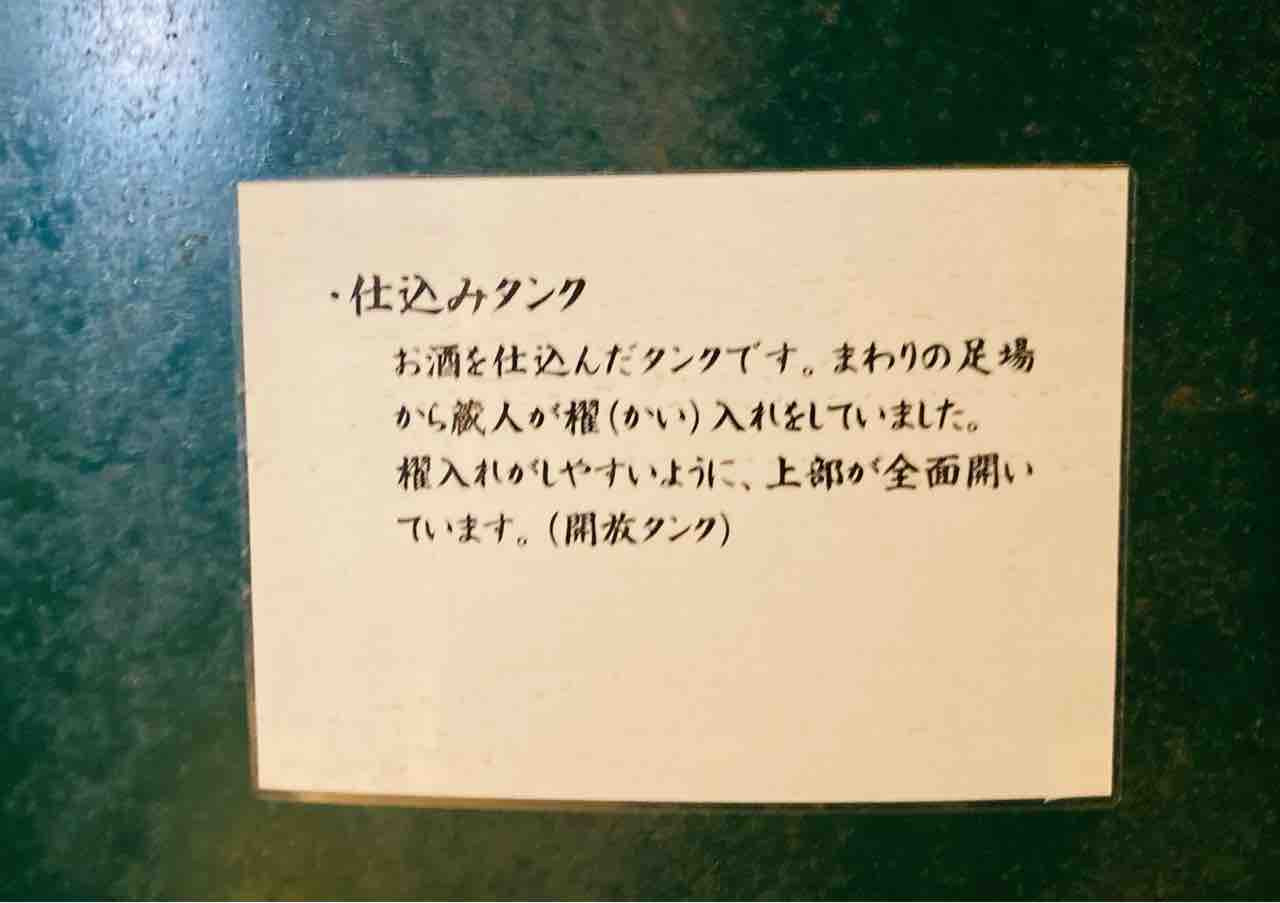 ・仕込みタンク
お酒を仕込んだタンクです。まわりの足場
から蔵人が櫂(かい)入れをしていました。
櫂入れがしやすいように、上部が全面開い
ています。(開放タンク)